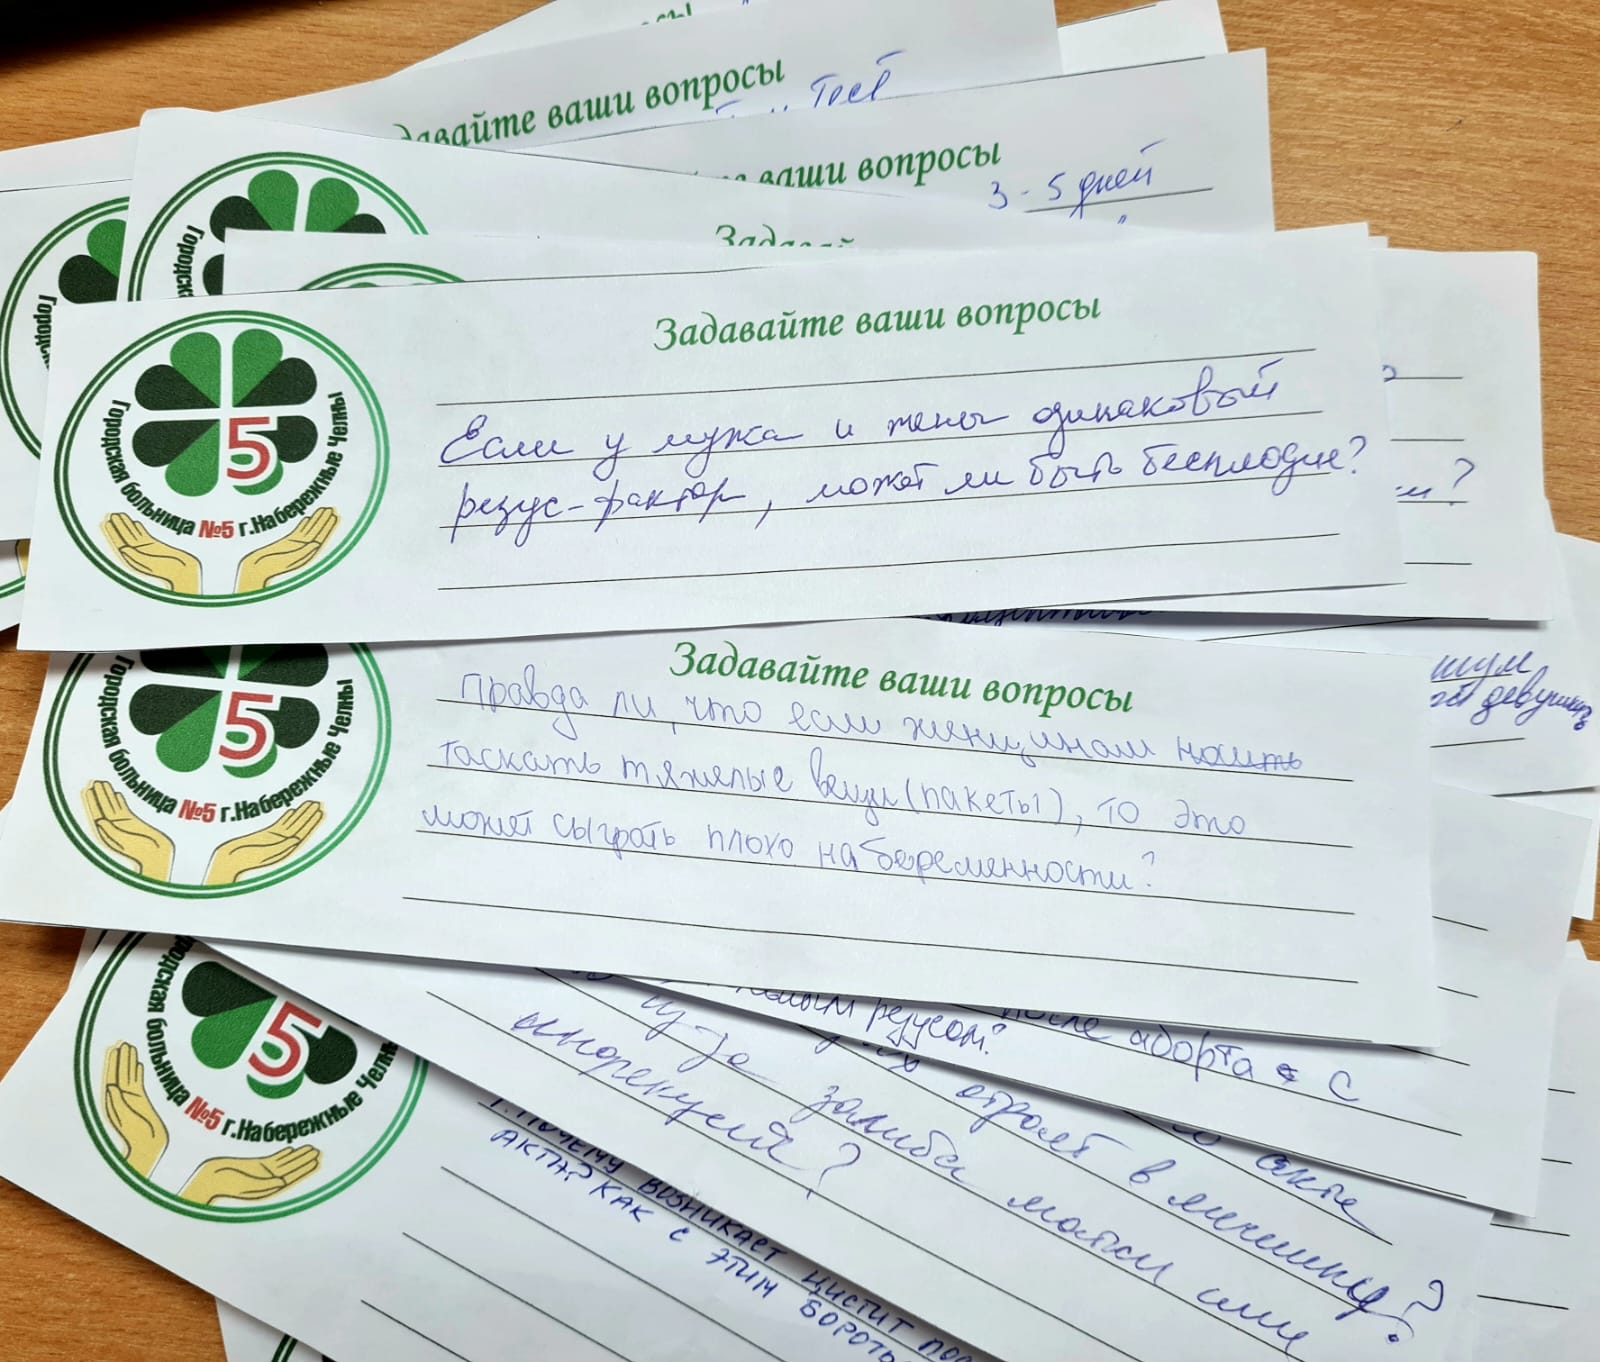 давайте ваши вопросы
тест
ваши вопросы
3-5 дней
Задавай
Задавайте ваши вопросы
Если у мужа и жены одинаковый
резус-фактор, может ли быть бесплодие?
Городская больница №5 г.Набережные Челны
5
?
шум
девушкь
Задавайте ваши вопросы
Правда ли, что если женщинам носить
таскать тяжелые вещи (пакеты), то это
может сыграть плохо на беременности?
Городская больница №5 г.Набережные Челны
5
резусом?
после аборта с
из-за загиба матки или
инфекций?
отдает в
акте
Городская больница №5 г.Набережные Челны
5
1. Почему возникает цистит пос
акта? Как с этим бороть